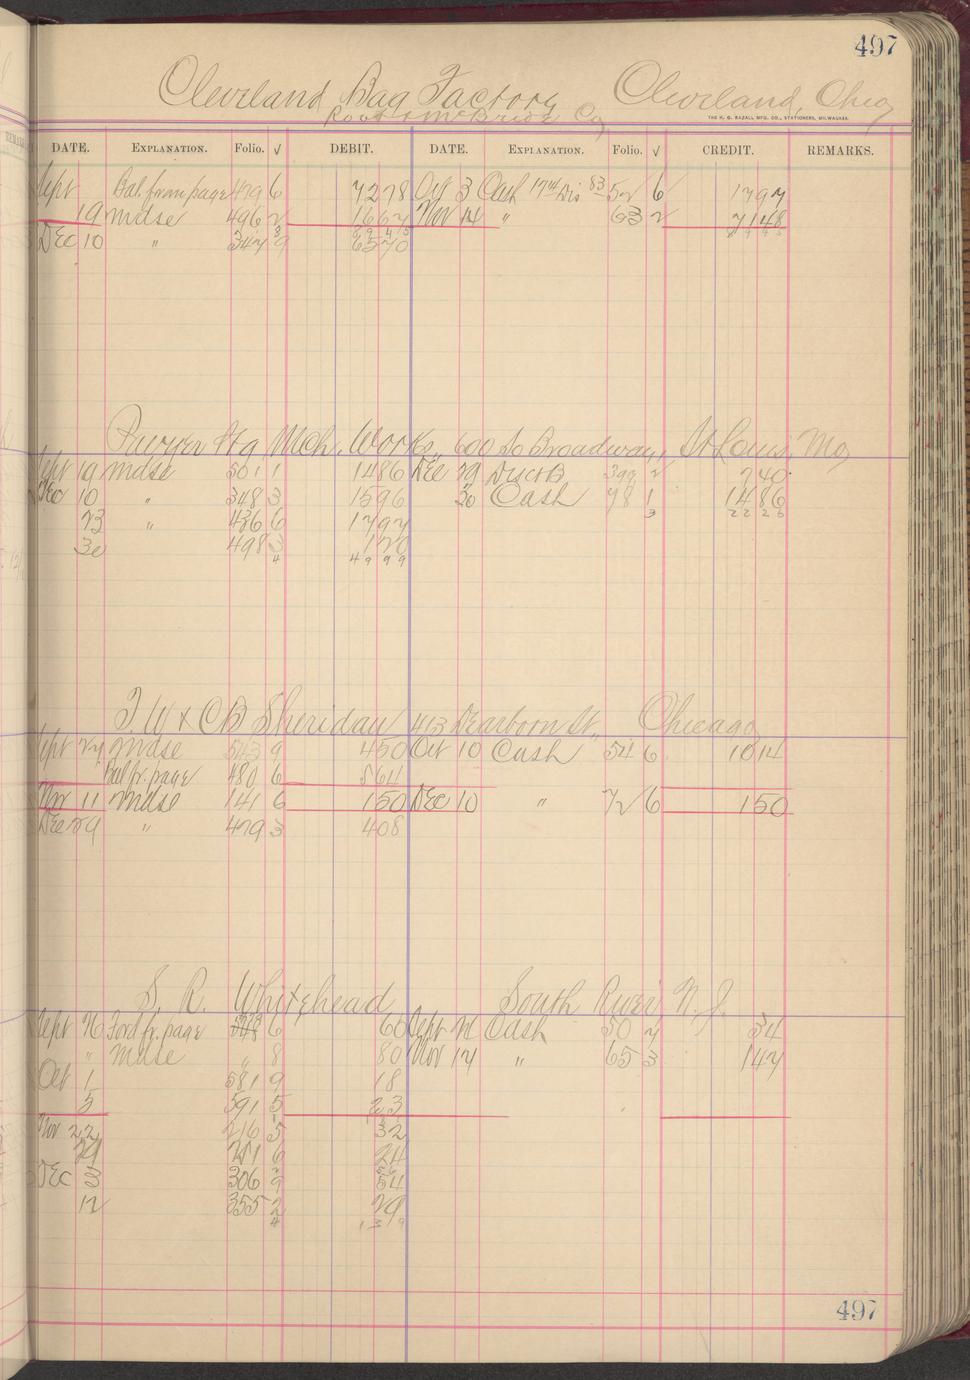 497
Cleveland Bag Factory Cleveland, Ohio
Root & McBride Co
THE H. G. RAZALL MFG. CO., STATIONERS, MILWAUKEE.
DATE. EXPLANATION. Folio. √ DEBIT. DATE. EXPLANATION. Folio. √ CREDIT. REMARKS.
Sept Bal. from page 479 6 7278 Oct 3 Cash 1714 Dis 83 52 6 1797
19 Mdse 496 2 1667 Nov 14 " 63 2 7148
8945
Dec 10 " 347 9 6570
Mch. Works, 600 So Broadway, St Louis, Mo
Sept 19 Mdse 501 1 1486 Dec 29 Disct B 399 2 740
Dec 10 " 348 3 1596 30 Cash 78 1 1486
23 " 436 6 1797 3 2226
30 498 3 120
4 4999
T. W & C B Sheridan 413 Dearborn St., Chicago
Sept 24 Mdse 543 9 450 Oct 10 Cash 54 6 1014
Bal fr. page 480 6 564
Nov 11 Mdse 141 6 150 Dec 10 " 72 6 150
Dec 29 " 479 3 408
S. R. Whitehead South River N. J.
Sept 26 Ford fr. page 6 60 Sept 12 Cash 50 7 34
" " Mdse " 8 80 Nov 17 " 65 3 147
Oct 1 581 9 18
5 591 5 23
Nov 22 216 5 32
29 251 6 24
56
Dec 3 306 9 54
12 355 2 29
4 139
497